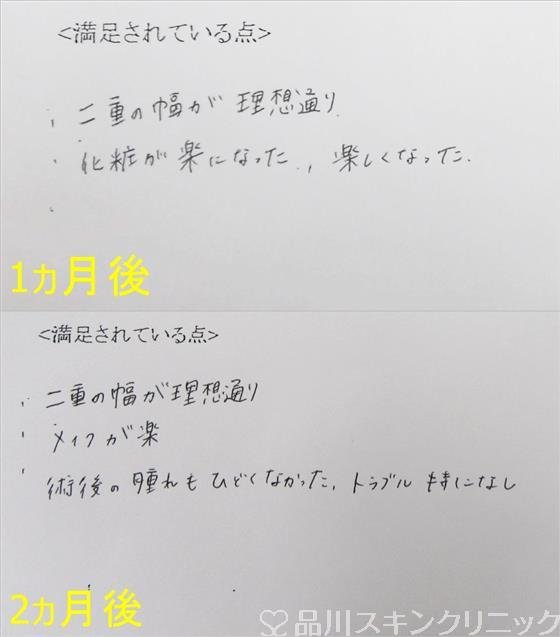 <満足されている点>
・二重の幅が理想通り.
・化粧が楽になった.，楽しくなった.
・
1カ月後
<満足されている点>
・二重の幅が理想通り
・メイクが楽
・術後の腫れもひどくなかった，トラブル特になし
2カ月後
品川スキンクリニック